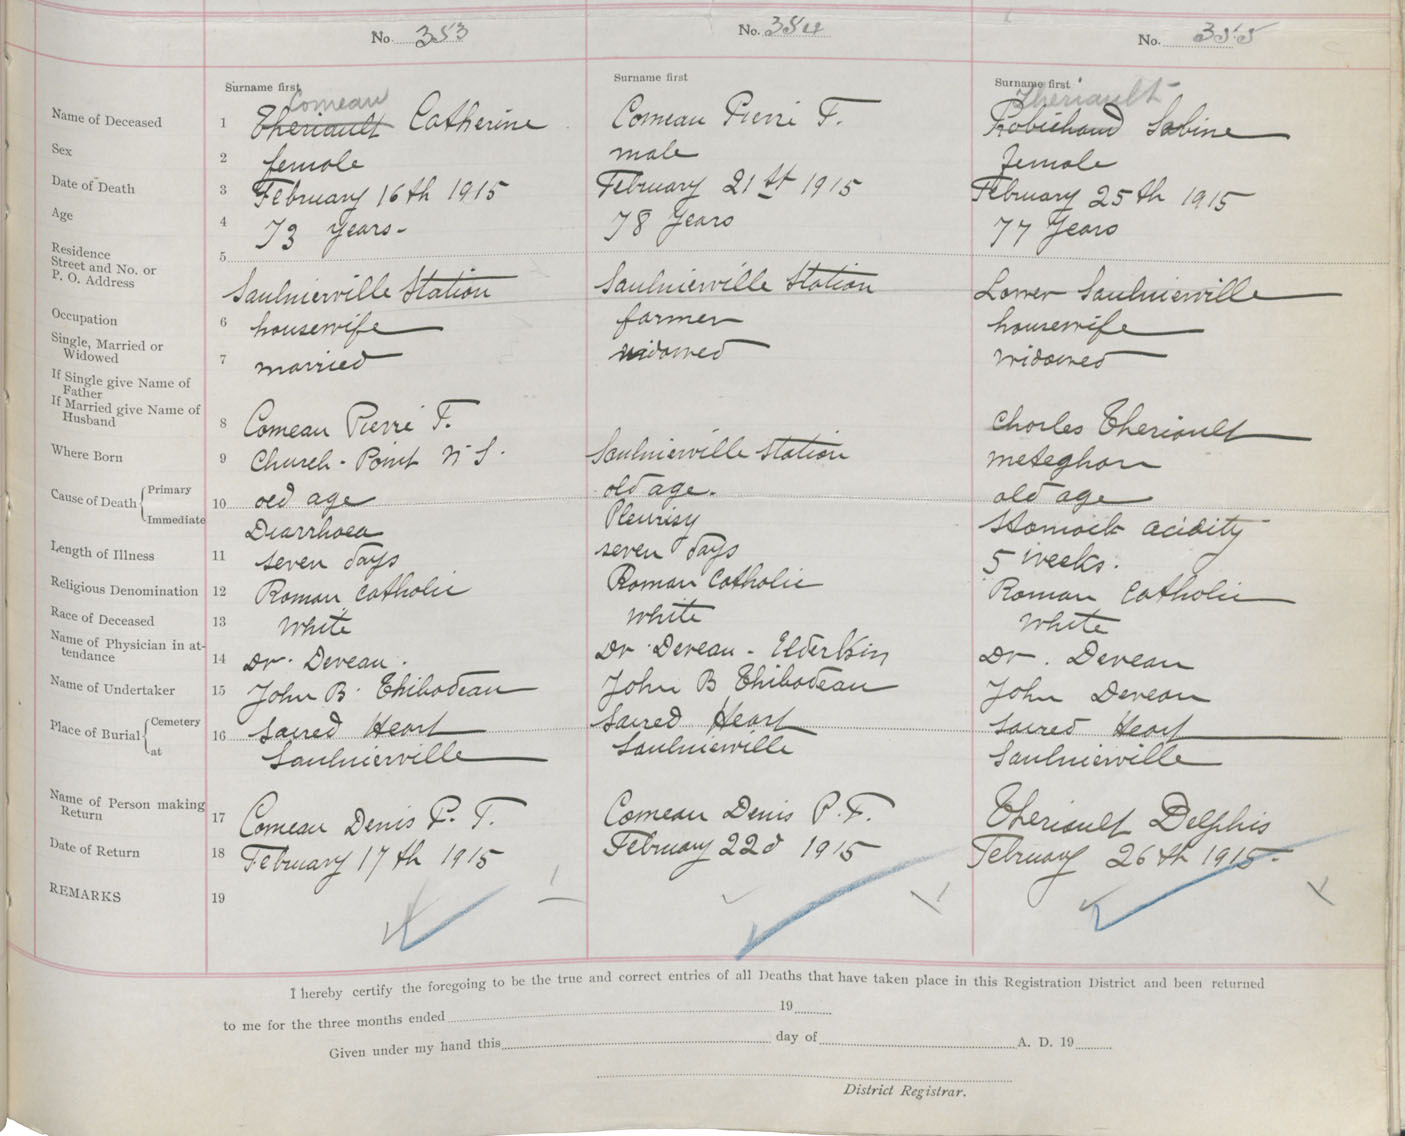 No. 353 No. 354 No. 355
Surname first Surname first Surname first
Comeau Theriault
Name of Deceased 1 Theriault Catherine Comeau Pierre F. Robichaud Sabine
Sex 2 female male female
Date of Death 3 February 16th 1915 February 21st 1915 February 25th 1915
Age 4 73 years - 78 years 77 years
Residence
Street and No. or
P. O. Address 5 Saulnierville Station Saulnierville Station Lower Saulnierville
Occupation 6 housewife farmer housewife
Single, Married or
Widowed 7 married widowed widowed
If Single give Name of
Father
If Married give Name of
Husband 8 Comeau Pierre F. Charles Theriault
Where Born 9 Church-Point N S. Saulnierville Station Meteghan
Cause of Death { Primary 10 old age old age. old age
Immediate Diarrhoea Pleurisy Stomach acidity
Length of Illness 11 seven days seven days 5 weeks.
Religious Denomination 12 Roman Catholic Roman Catholic Roman Catholic
Race of Deceased 13 White White White
Name of Physician in at-
tendance 14 Dr. Deveau. Dr. Deveau - Elderkin Dr. Deveau
Name of Undertaker 15 John B. Thibodeau John B Thibodeau John Deveau
Place of Burial { Cemetery 16 Sacred Heart Sacred Heart Sacred Heart
at Saulnierville Saulnierville Saulnierville
Name of Person making
Return 17 Comeau Denis P. F. Comeau Denis P. F. Theriault Delphis
Date of Return 18 February 17th 1915 February 22d 1915 February 26th 1915-
REMARKS 19
I hereby certify the foregoing to be the true and correct entries of all Deaths that have taken place in this Registration District and been returned
to me for the three months ended 19
Given under my hand this day of A. D. 19
District Registrar.